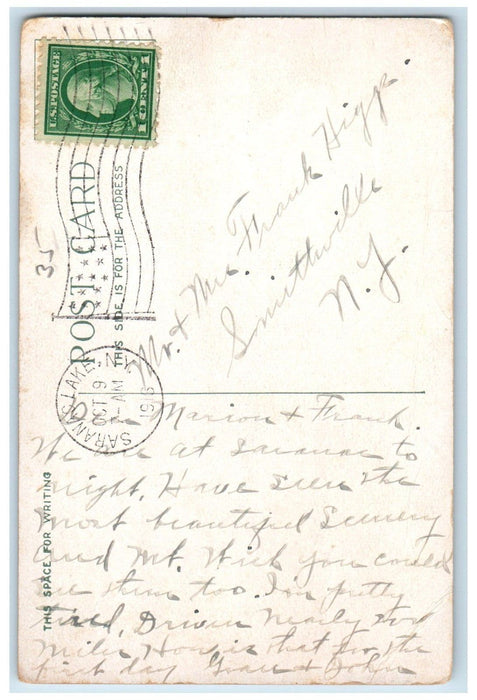 U.S. POSTAGE
1 CENT 1
35
POST CARD
THIS SIDE IS FOR THE ADDRESS
SARANAC LAKE, N.Y.
OCT 9
AM
1916
Mr. & Mrs. Frank Higgs.
Smithville
N.Y.
THIS SPACE FOR WRITING
Dear Marion & Frank.
We are at Saranac to
night. Have seen the
most beautiful Scenery
and Mt. Wish you could
see them too. I'm pretty
tired, Driven nearly 200
miles How is that for the
first day Grace & John